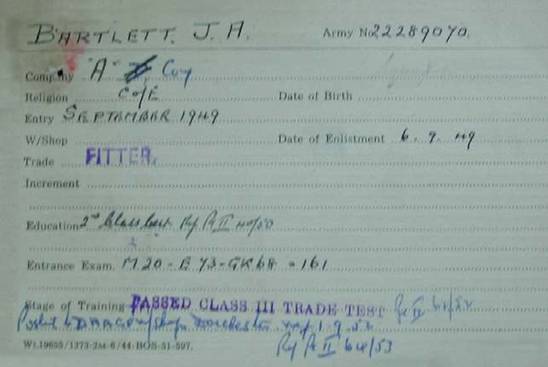 BARTLETT. J. A. Army No. 22289070.
Company "A" Coy
Religion C of E Date of Birth
Entry SEPTEMBER 1949
W/Shop Date of Enlistment 6. 9. 49
Trade FITTER.
Increment
Education 2nd Class Cert. Pt II
Entrance Exam. M20 - E 73 - GK 68 = 161
Stage of Training PASSED CLASS III TRADE TEST
Posted to Workshops w.e.f. 1. 9. 52
Pt II 64/53
Wt.19695/1273-2M-6/44-BOS-51-597.